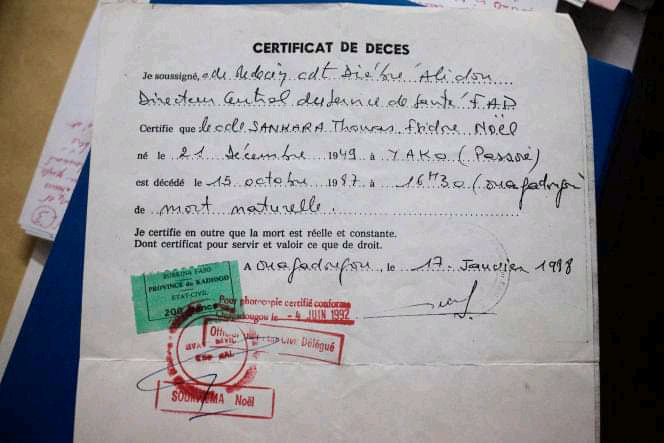 CERTIFICAT DE DECES
Je soussigné, Médecin cdt Diébré Alidou
Directeur Central des service de santé FAP
Certifie que le cde SANKARA Thomas Isidore Noël
né le 21 Décembre 1949 à YAKO (Passoré)
est décédé le 15 octobre 1987 à 16H30 (Ouagadougou)
de mort naturelle.
Je certifie en outre que la mort est réelle et constante.
Dont certificat pour servir et valoir ce que de droit.
A Ouagadougou, le 17 Janvier 1988
BURKINA FASO
PROVINCE du KADIOGO
ETAT-CIVIL
200 francs
Pour photocopie certifié conforme
le - 4 JUIN 1992
Civil Délégué
Noël